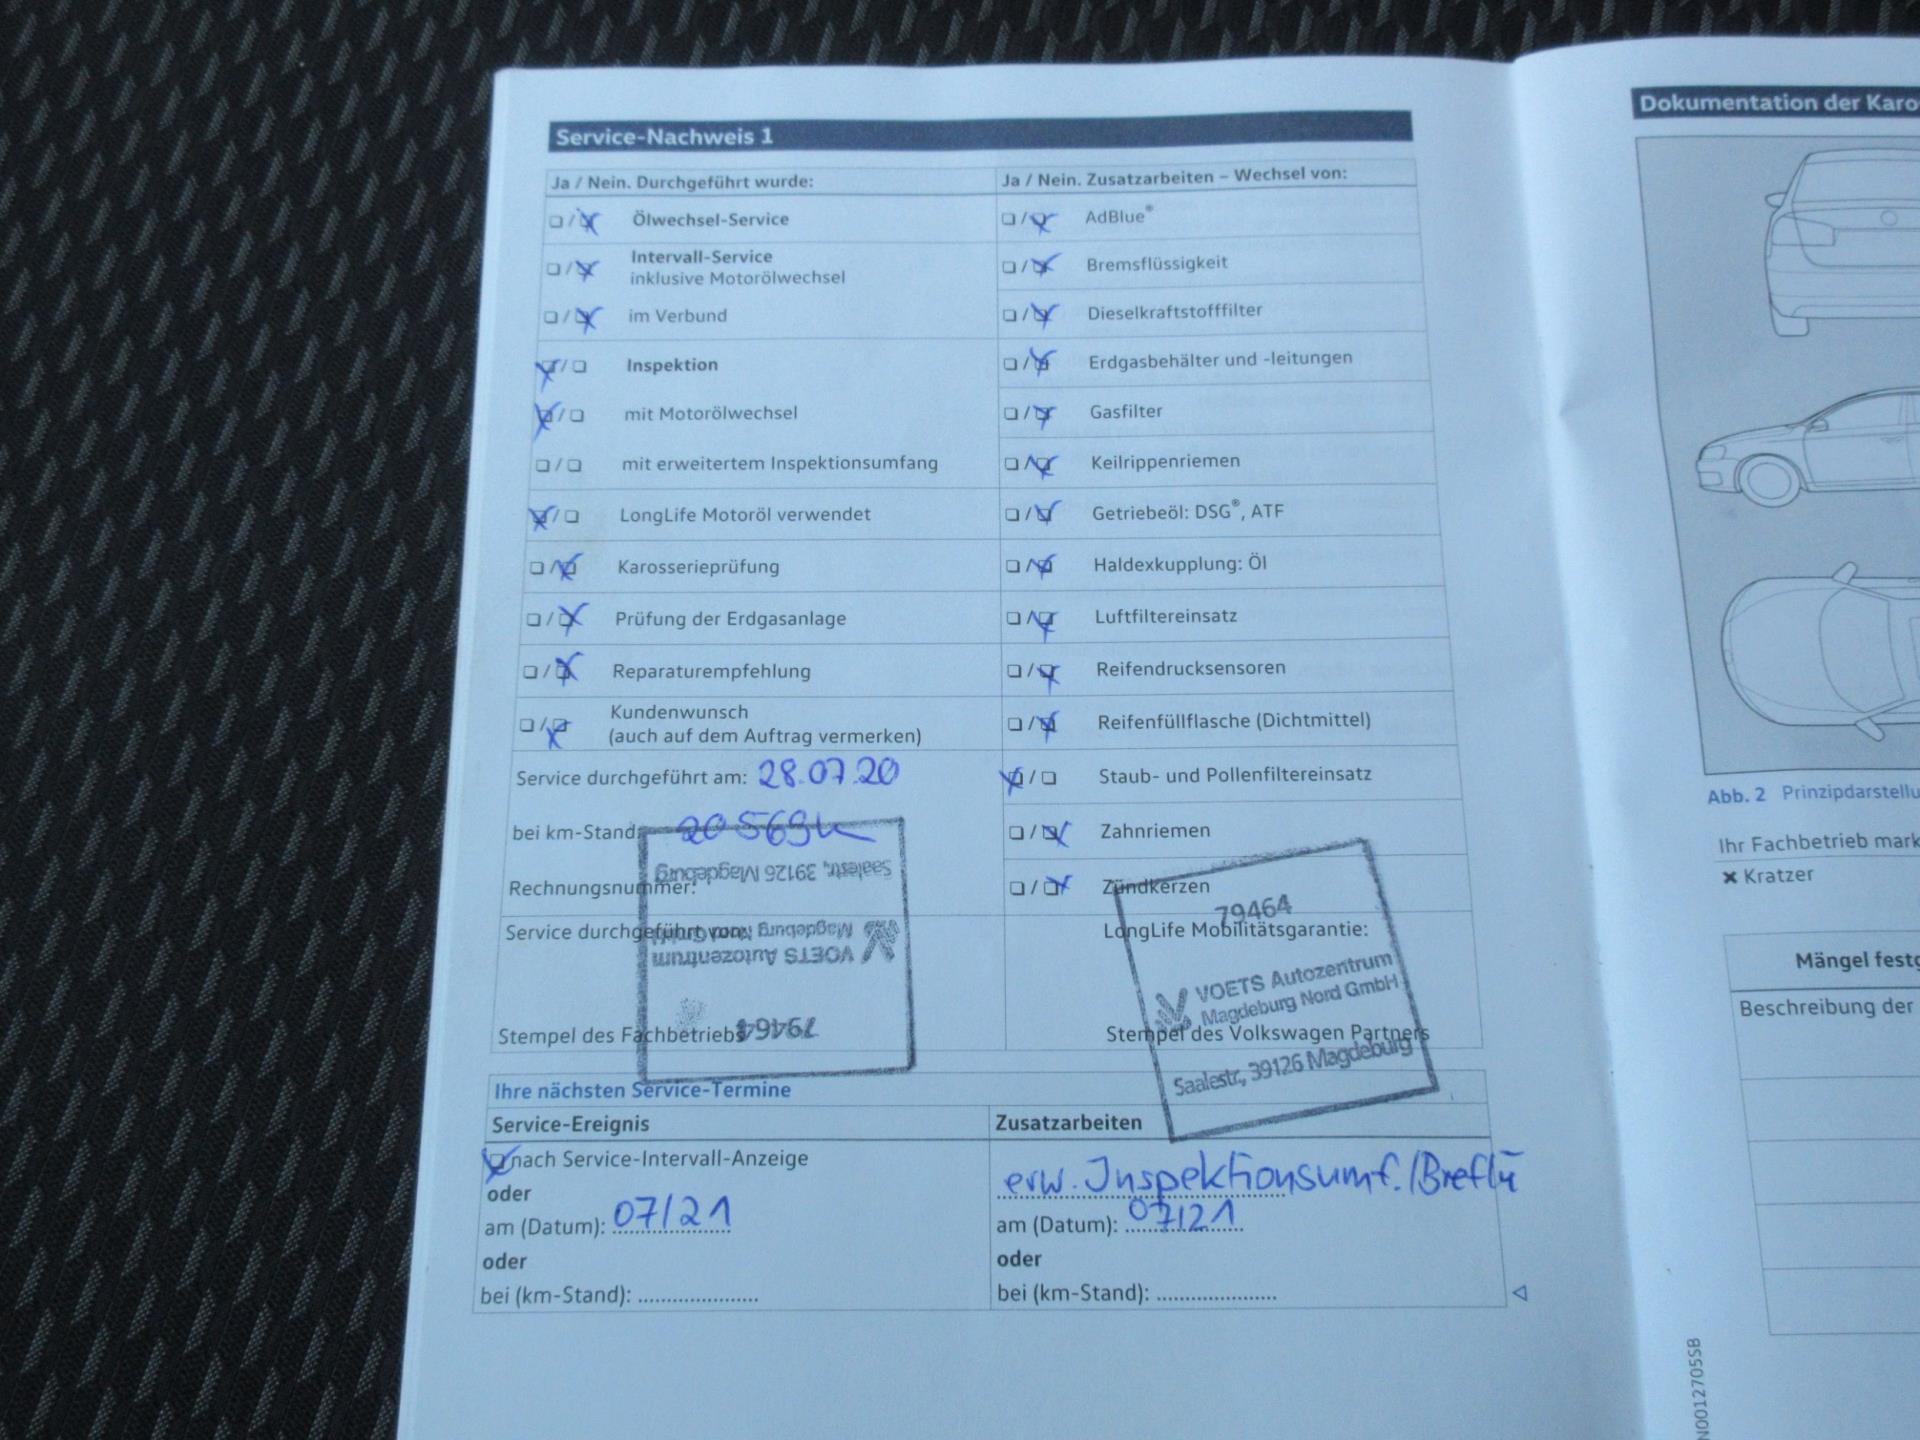 Service-Nachweis 1
Ja / Nein. Durchgeführt wurde:
Ölwechsel-Service
Intervall-Service
inklusive Motorölwechsel
im Verbund
Inspektion
mit Motorölwechsel
mit erweitertem Inspektionsumfang
LongLife Motoröl verwendet
Karosserieprüfung
Prüfung der Erdgasanlage
Reparaturempfehlung
Kundenwunsch
(auch auf dem Auftrag vermerken)
Service durchgeführt am: 28.07.20
bei km-Stand:
Rechnungsnummer:
Service durchgeführt von:
Stempel des Fachbetriebs
Saalestr., 39126 Magdeburg
Magdeburg Nord GmbH
VOETS Autozentrum
79464
Ja / Nein. Zusatzarbeiten – Wechsel von:
AdBlue®
Bremsflüssigkeit
Dieselkraftstofffilter
Erdgasbehälter und -leitungen
Gasfilter
Keilrippenriemen
Getriebeöl: DSG®, ATF
Haldexkupplung: Öl
Luftfiltereinsatz
Reifendrucksensoren
Reifenfüllflasche (Dichtmittel)
Staub- und Pollenfiltereinsatz
Zahnriemen
Zündkerzen
79464
LongLife Mobilitätsgarantie:
VOETS Autozentrum
Magdeburg Nord GmbH
Stempel des Volkswagen Partners
Saalestr., 39126 Magdeburg
Ihre nächsten Service-Termine
Service-Ereignis
nach Service-Intervall-Anzeige
oder
am (Datum): 07/21
oder
bei (km-Stand):
Zusatzarbeiten
erw. Inspektionsumf./Breflü
am (Datum): 07/21
oder
bei (km-Stand):
Dokumentation der Karo
Abb. 2 Prinzipdarstellu
Ihr Fachbetrieb mark
✖ Kratzer
Mängel festg
Beschreibung der
N0012705SB